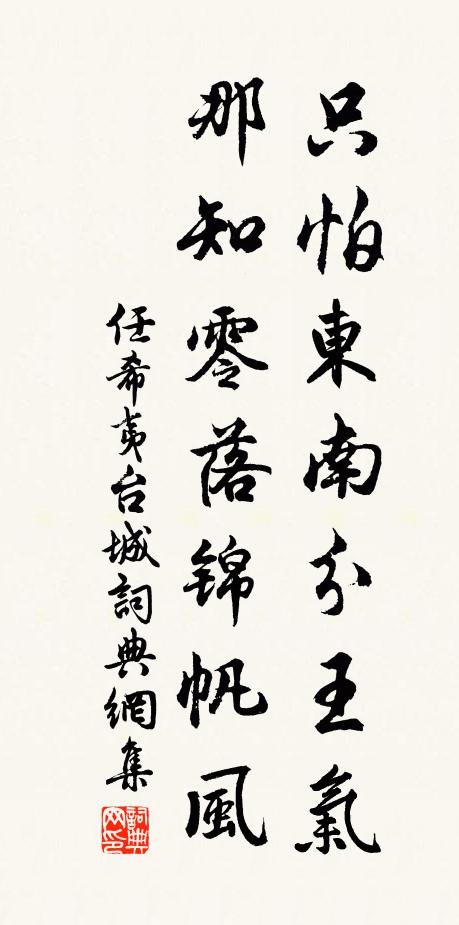 只怕東南分王氣
那知零落錦帆風
任希夷台城詞典網集
詞典网印